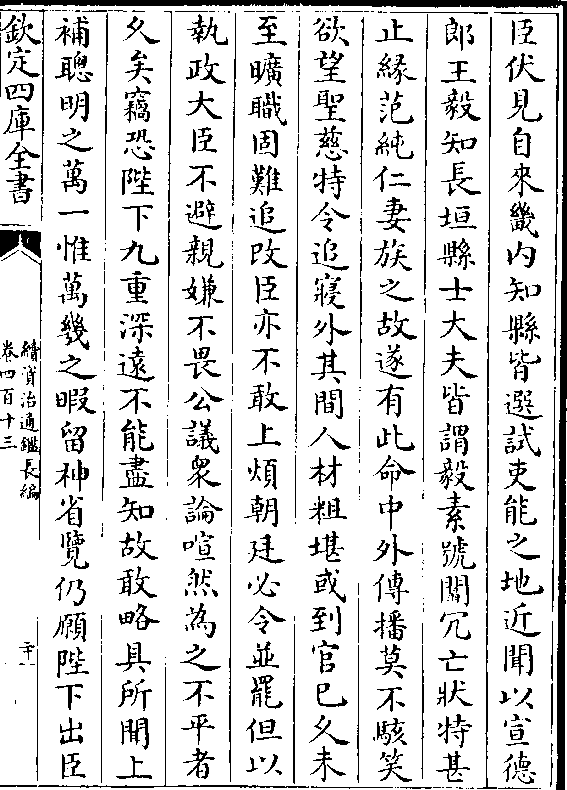 臣伏見自來畿内知縣皆選試吏能之地近聞以宣德
郎王毅知長垣縣士大夫皆謂毅素號闒冗亡狀特甚
止縁范純仁妻族之故遂有此命中外傳播莫不駭笑
欲望聖慈特令追寢外其間人材粗堪或到官已久未
至曠職固難追改臣亦不敢上煩朝廷必令並罷但以
執政大臣不避親嫌不畏公議衆論喧然為之不平者
久矣竊恐陛下九重深遠不能盡知故敢略具所聞上
補聰明之萬一惟萬幾之暇留神省覽仍願陛下出臣
欽定四庫全書
續資治通鑑長編
卷四百十三